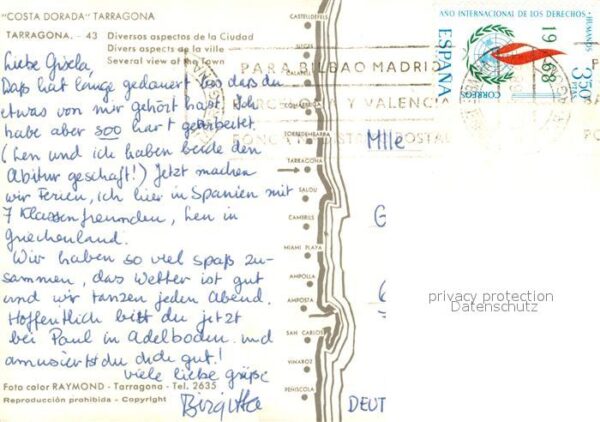 "COSTA DORADA" TARRAGONA
TARRAGONA. - 43 Diversos aspectos de la Ciudad
Divers aspects de la ville
Several view of the Town
Liebe Gisela,
Daß hat lange gedauert bis daß du
etwas von mir gehört hast. Ich
habe aber soo hart gearbeitet.
(Len und ich haben beide den
Abitur geschaft!) Jetzt machen
wir Ferien, ich hier in Spanien mit
7 Klassenfreunden, Len in
Griechenland.
Wir haben so viel spaß zu-
sammen, das Wetter ist gut
und wir tanzen jeden Abend.
Hoffentlich bist du jetzt
bei Paul in Adelboden und
amusierst du dich gut!
viele liebe grüße
Birgitta
Foto color RAYMOND - Tarragona - Tel. 2635
Reproducción prohibida - Copyright
CASTELLDEFELS
SITGES
CALAFELL
TORREDEMBARRA
TARRAGONA
SALOU
CAMBRILS
MIAMI PLAYA
AMPOLLA
AMPOSTA
SAN CARLOS
VINAROZ
PEÑISCOLA
PARA BILBAO MADRID
BARCELONA Y VALENCIA
PONGA DISTRITO POSTAL
AÑO INTERNACIONAL DE LOS DERECHOS HUMANOS
ESPAÑA
CORREOS
3'50 PTAS
1968
Mlle
G
DEUT
privacy protection
Datenschutz